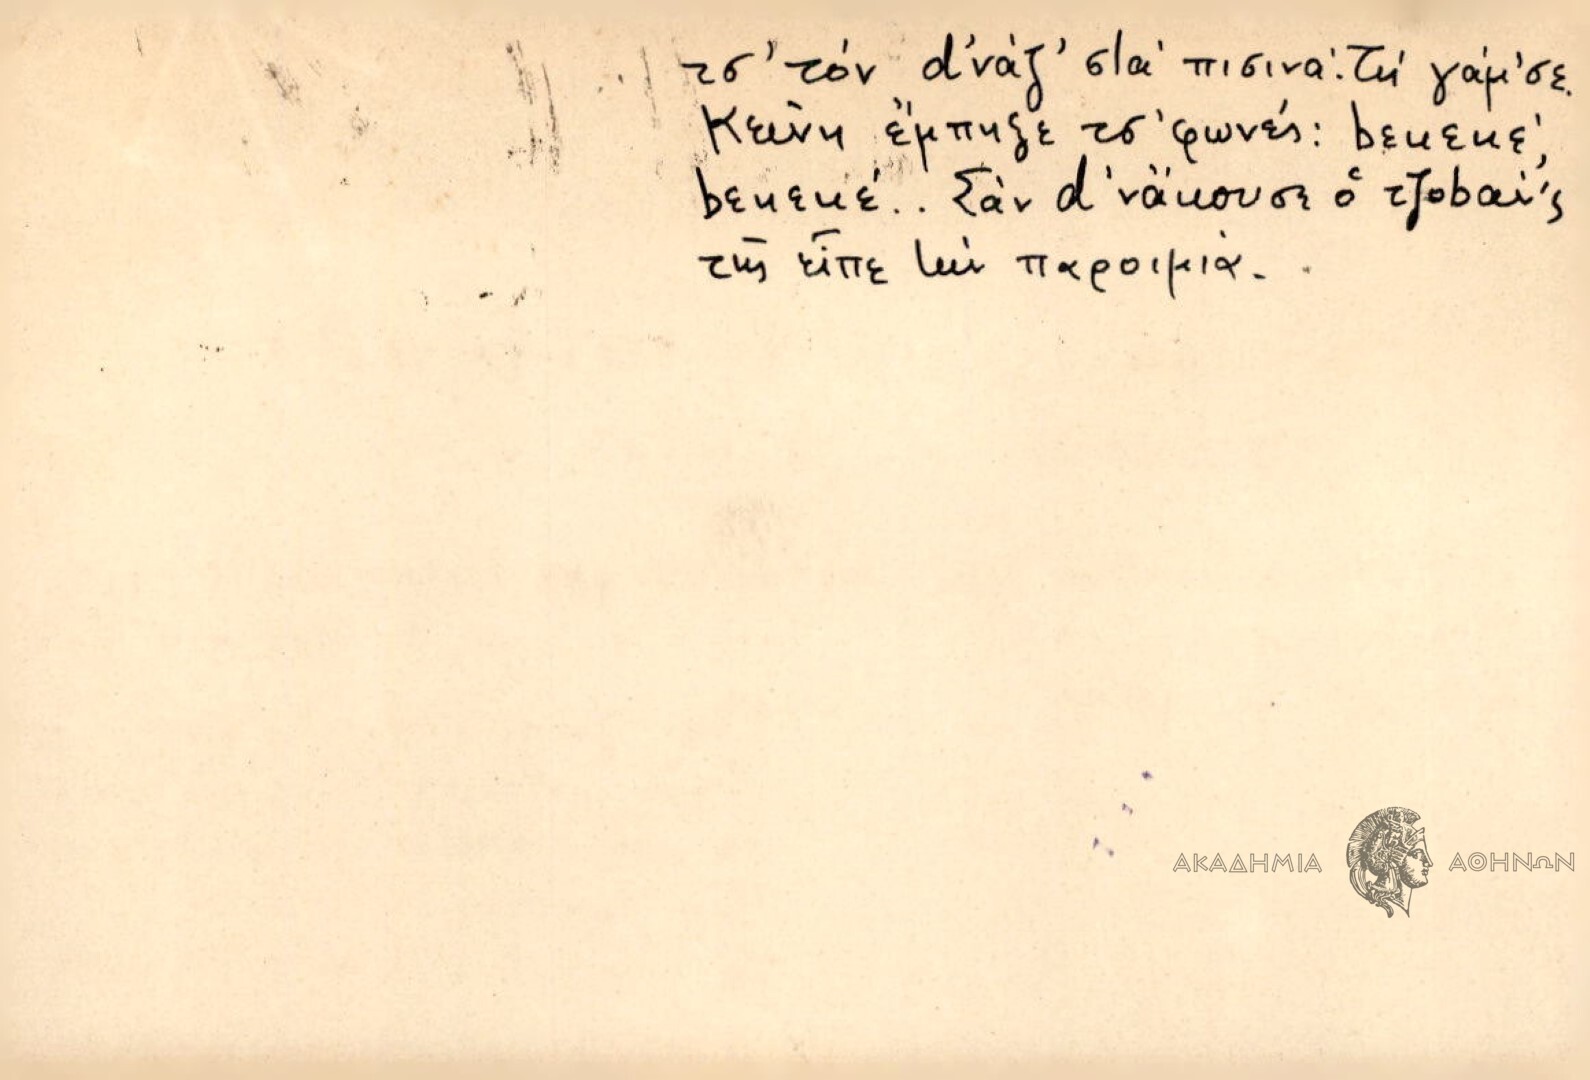 τσ' τόν d'νάζ' στά πισινά. Τή γάμ'σε.
Κείνη ἔμπηξε τσ' φωνές: bεκεκέ,
bεκεκέ.. Σάν d' νἄκουσε ὁ τζοbαν'ς
τῆς εἶπε τήν παροιμιά.
ΑΚΑΔΗΜΙΑ ΑΘΗΝΩΝ